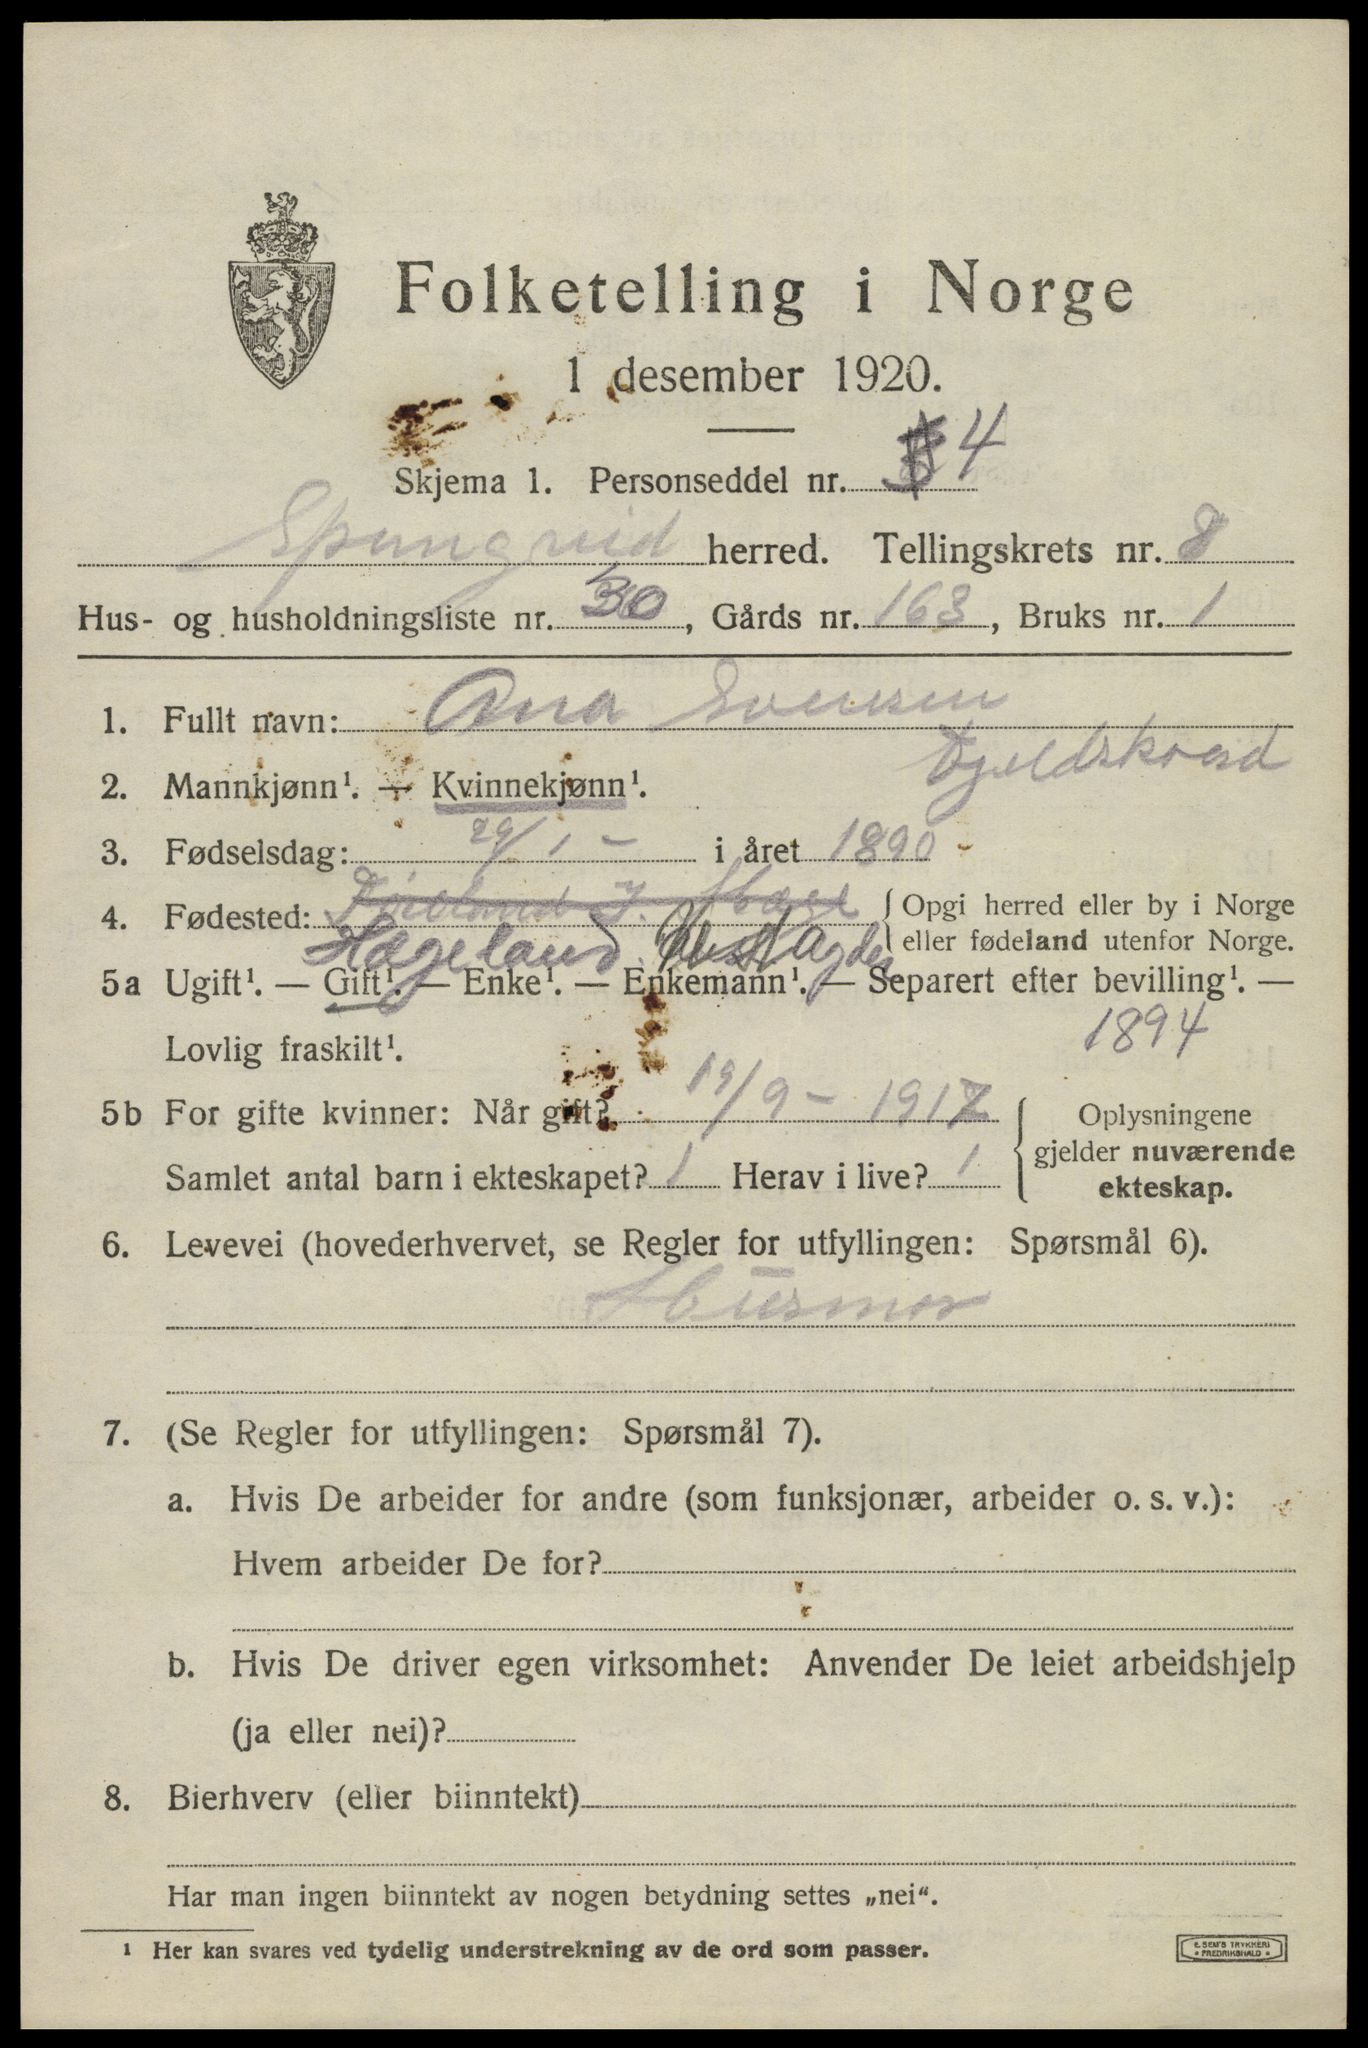 Folketelling i Norge
1 desember 1920.
Skjema 1. Personseddel nr. 4
herred. Tellingskrets nr. 8
Hus- og husholdningsliste nr. 30, Gårds nr. 163, Bruks nr. 1
1. Fullt navn: Ana Svensen
2. Mannkjønn¹. — Kvinnekjønn¹.
3. Fødselsdag: 29/1 – i året 1890
4. Fødested: { Opgi herred eller by i Norge
eller fødeland utenfor Norge.
Hægeland Vest Agder
5a Ugift¹. — Gift¹. — Enke¹. — Enkemann¹. — Separert efter bevilling¹. —
1894
Lovlig fraskilt¹.
5b For gifte kvinner: Når gift? 19/9 – 1917
Samlet antal barn i ekteskapet? 1 Herav i live? 1
{ Oplysningene
gjelder nuværende
ekteskap.
6. Levevei (hovederhvervet, se Regler for utfyllingen: Spørsmål 6).
Husmor
7. (Se Regler for utfyllingen: Spørsmål 7).
a. Hvis De arbeider for andre (som funksjonær, arbeider o. s. v.):
Hvem arbeider De for?
b. Hvis De driver egen virksomhet: Anvender De leiet arbeidshjelp
(ja eller nei)?
8. Bierhverv (eller biinntekt)
Har man ingen biinntekt av nogen betydning settes „nei“.
¹ Her kan svares ved tydelig understrekning av de ord som passer.
E. SEM'S TRYKKERI
• FREDRIKSHALD •